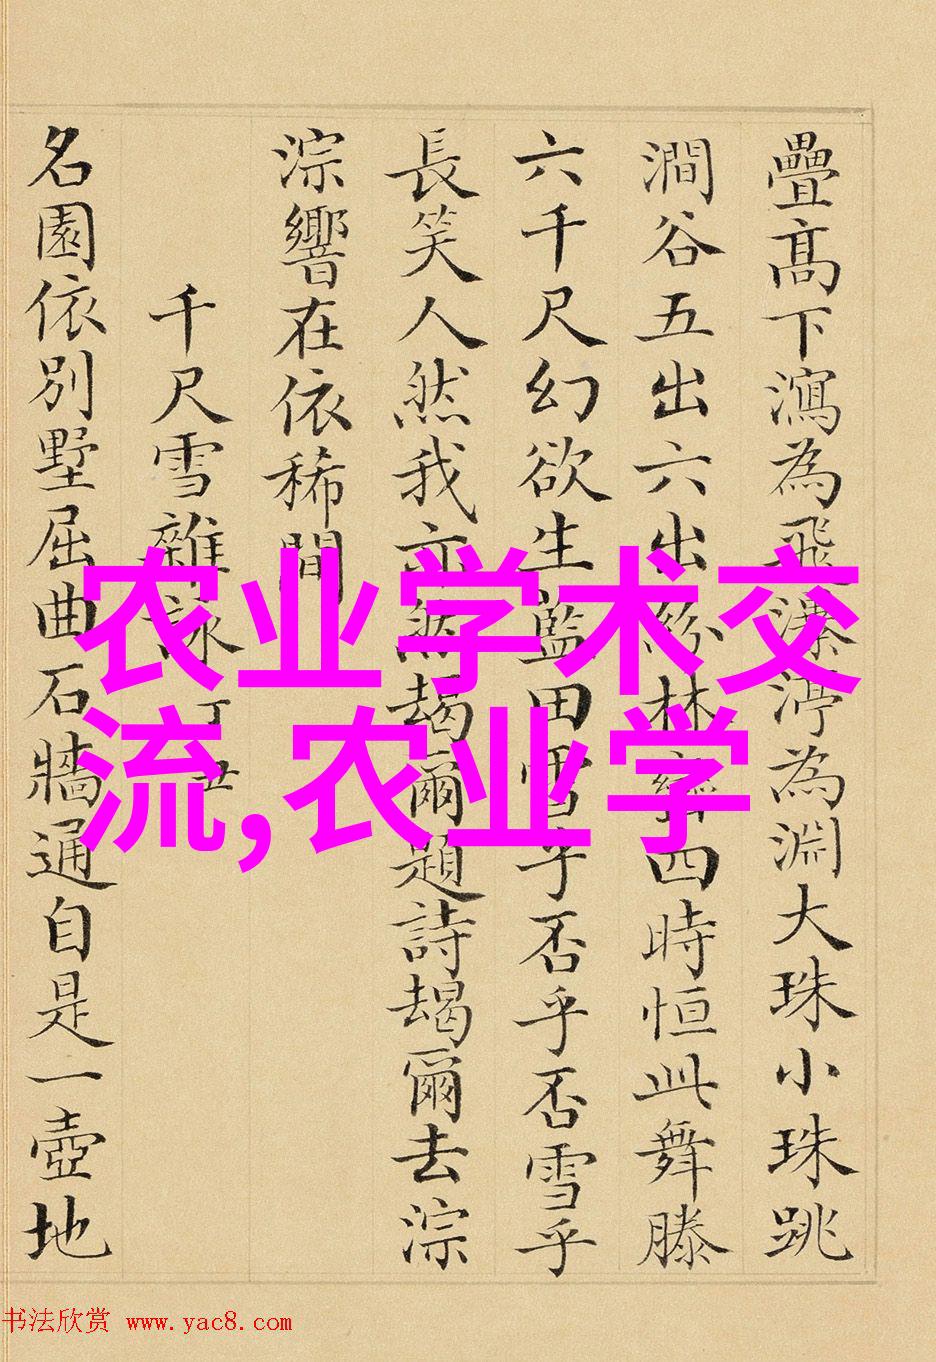 疊髙下瀉為飛瀑渟為淵大珠小珠跳
澗谷五出六出紛林巒四時恒此舞滕
六千尺幻欲生藍田雪乎否乎否雪乎
長笑人然我亦然朅爾題詩朅爾去淙
淙響在依稀間
千尺雪雜詠丁丑
名園依別墅屈曲石牆通自是一壺地
农业学术交
流,农业学
书法欣赏 www.yac8.com